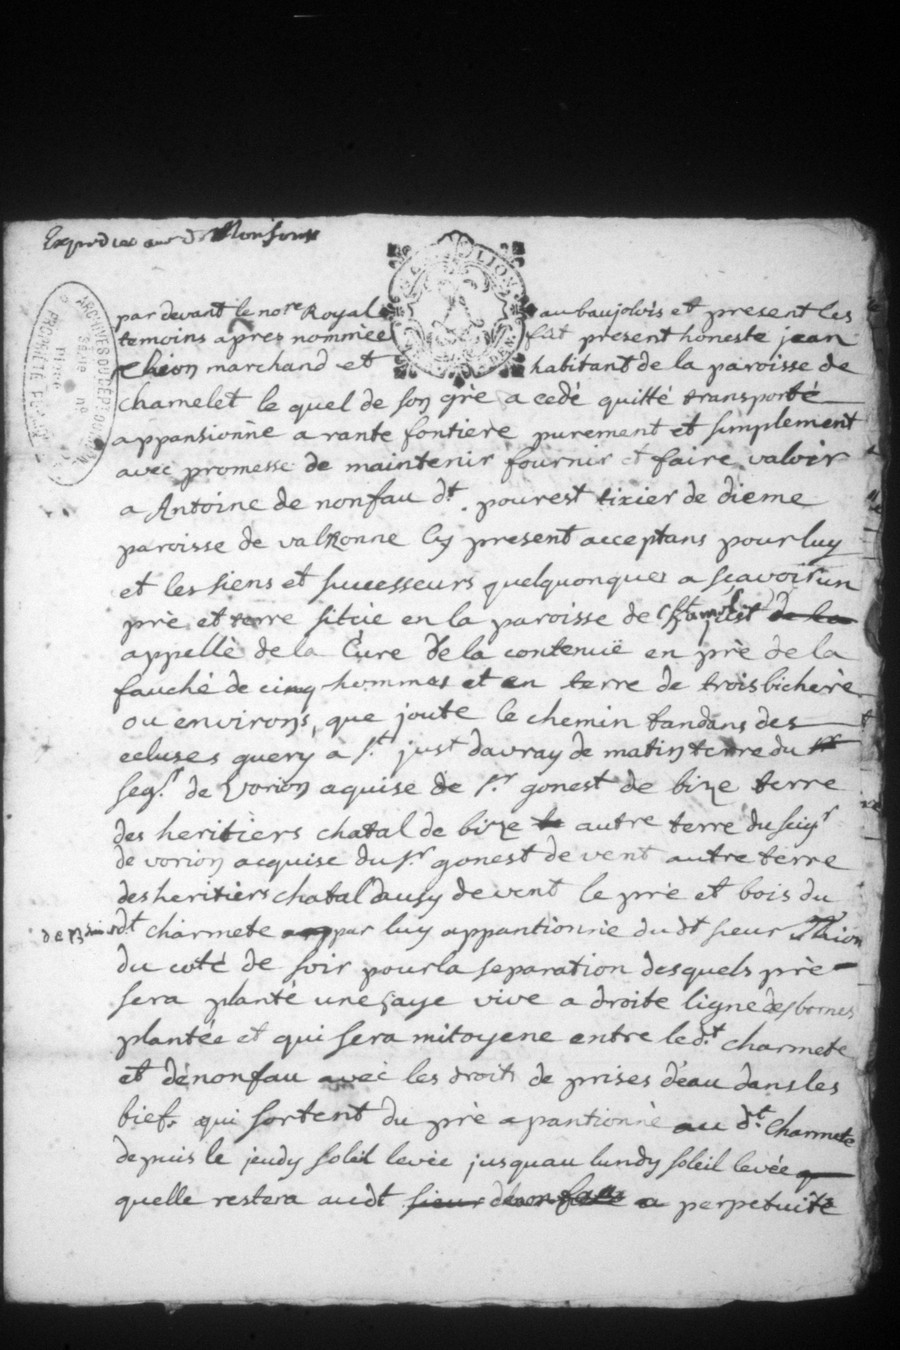 Expedié au d
par devant le no.re Royal au baujolois et present les
temoins apres nommée fût present honeste jean
Thion marchand et habitant de la paroisse de
chamelet le quel de son grè a cedé quitté transporté
appansionnè a rante fontiere purement et simplement
avec promesse de maintenir fournir et faire valoir
a Antoine de nonfau dt. pourest tixier de dieme
paroisse de valsonne Cy present acceptans pour luy
et les siens et successeurs quelquonques a sçavoir un
prè et terre situè en la paroisse de St just
appellè de la Cure de la contenuë en prè de la
fauché de cinq hommes et en terre de trois bicherè
ou environs, que joute le chemin tandans des
ecluses query a s.t just davray de matin terre du
seg.r de Vorion aquise de s.r gonest de bize terre
des heritiers chatal de bize autre terre du seig.r
de vorion acquise du s.r gonest de vent autre terre
des heritiers chatal ausy de vent le prè et bois du
dt charmete par luy appantionné du dt sieur Thion
du coté de soir pour la separation desquels prè
sera planté une haye vive a droite ligne des bornes
plantée et qui sera mitoyene entre le d.t charmete
et dénonfau avec les droits de prises d'eau dans les
bief qui sortent du prè apantionné au d.t Charmete
depuis le jeudy soleil levée jusquau lundy soleil levée
quelle restera audt sieur dénonfau a perpetuité
ARCHIVES DU DEPT DU